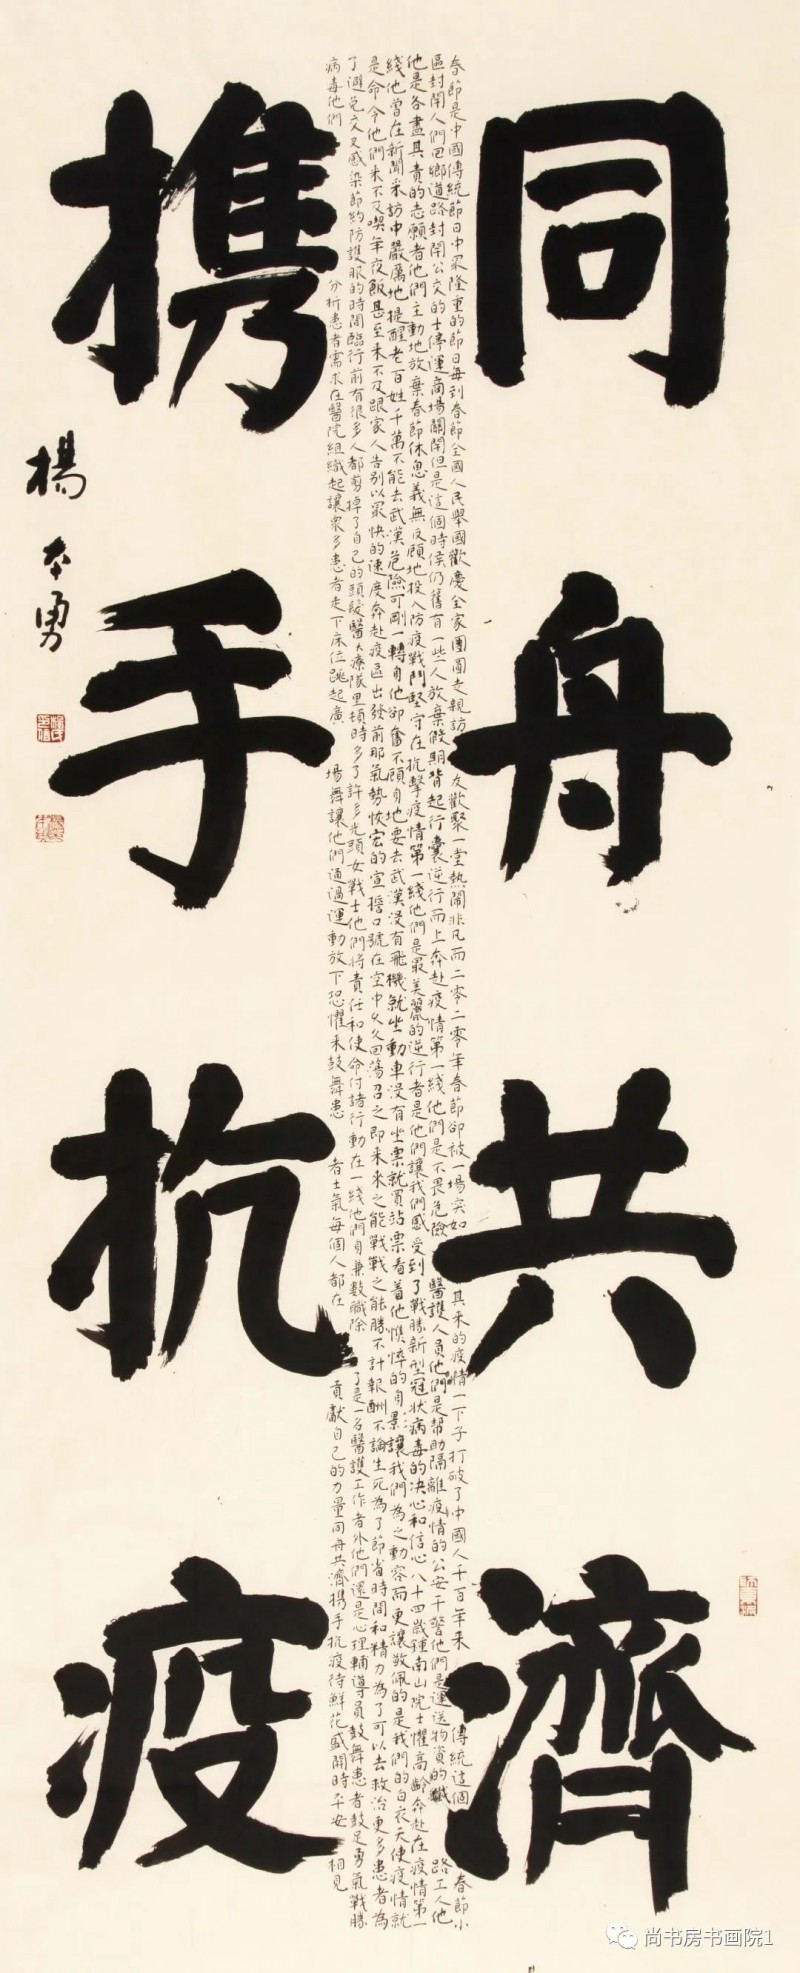 同舟共濟
春節是中國傳統節日中最隆重的節日每到春節全國人民舉國歡慶全家團圓走親訪友歡聚一堂熱鬧非凡而二零二零年春節卻被一場突如其来的疫情一下子打破了中國人千百年来傳統這個春節小
區封閉人們回鄉道路封閉公交的士停運商場關閉但是這個時侯仍舊有一些人放棄假期背起行囊逆行而上奔赴疫情第一綫他們是不畏危險醫護人員他們是幫助隔離疫情的公安干警他們是運送物資的鐵路工人他
他是各盡其責的志願者他們主動地放棄春節休息義無反顧地投入防疫戰鬥堅守在抗擊疫情第一綫他們是最美麗的逆行者是他們讓我們感受到了戰勝新型冠狀病毒的决心和信心八十四歲鍾南山院士懼高齡奔赴在疫情第一
綫他曾在新聞采訪中嚴厲地提醒老百姓千萬不能去武漢危險可剛一轉自他卻奮不顧自地要去武漢没有飛機就坐動車没有坐票就買站票看着他憔悴的自景讓我們為之動容而更讓敬佩的是我們的白衣天使疫情就
是命令他們来不及喫年夜飯甚至来不及跟家人告别以最快的速度奔赴疫區出發前那氣勢恢宏的宣誓口號在空中久久回蕩召之即来来之能戰戰之能勝不計報酬不論生死為了節省時間和精力為了可以去救治更多患者為
了避免交叉感染節約防護服的時間臨行前有很多人都剪掉了自己的頭髮醫療隊里頓時多了許多光頭女戰士他們將責任和使命付諸行動在一綫他們自兼數職除了是一名醫護工作者外他們還是心理輔導員鼓舞患者鼓足勇氣戰勝
病毒他們分析患者需求在醫院組織起讓衆多患者走下床位跳起廣場舞讓他們通過運動放下恐懼来鼓舞患者士氣每個人都在貢獻自己的力量同舟共濟携手抗疫待鮮花盛開時平安相見
携手抗疫
楊本勇
尚书房书画院1